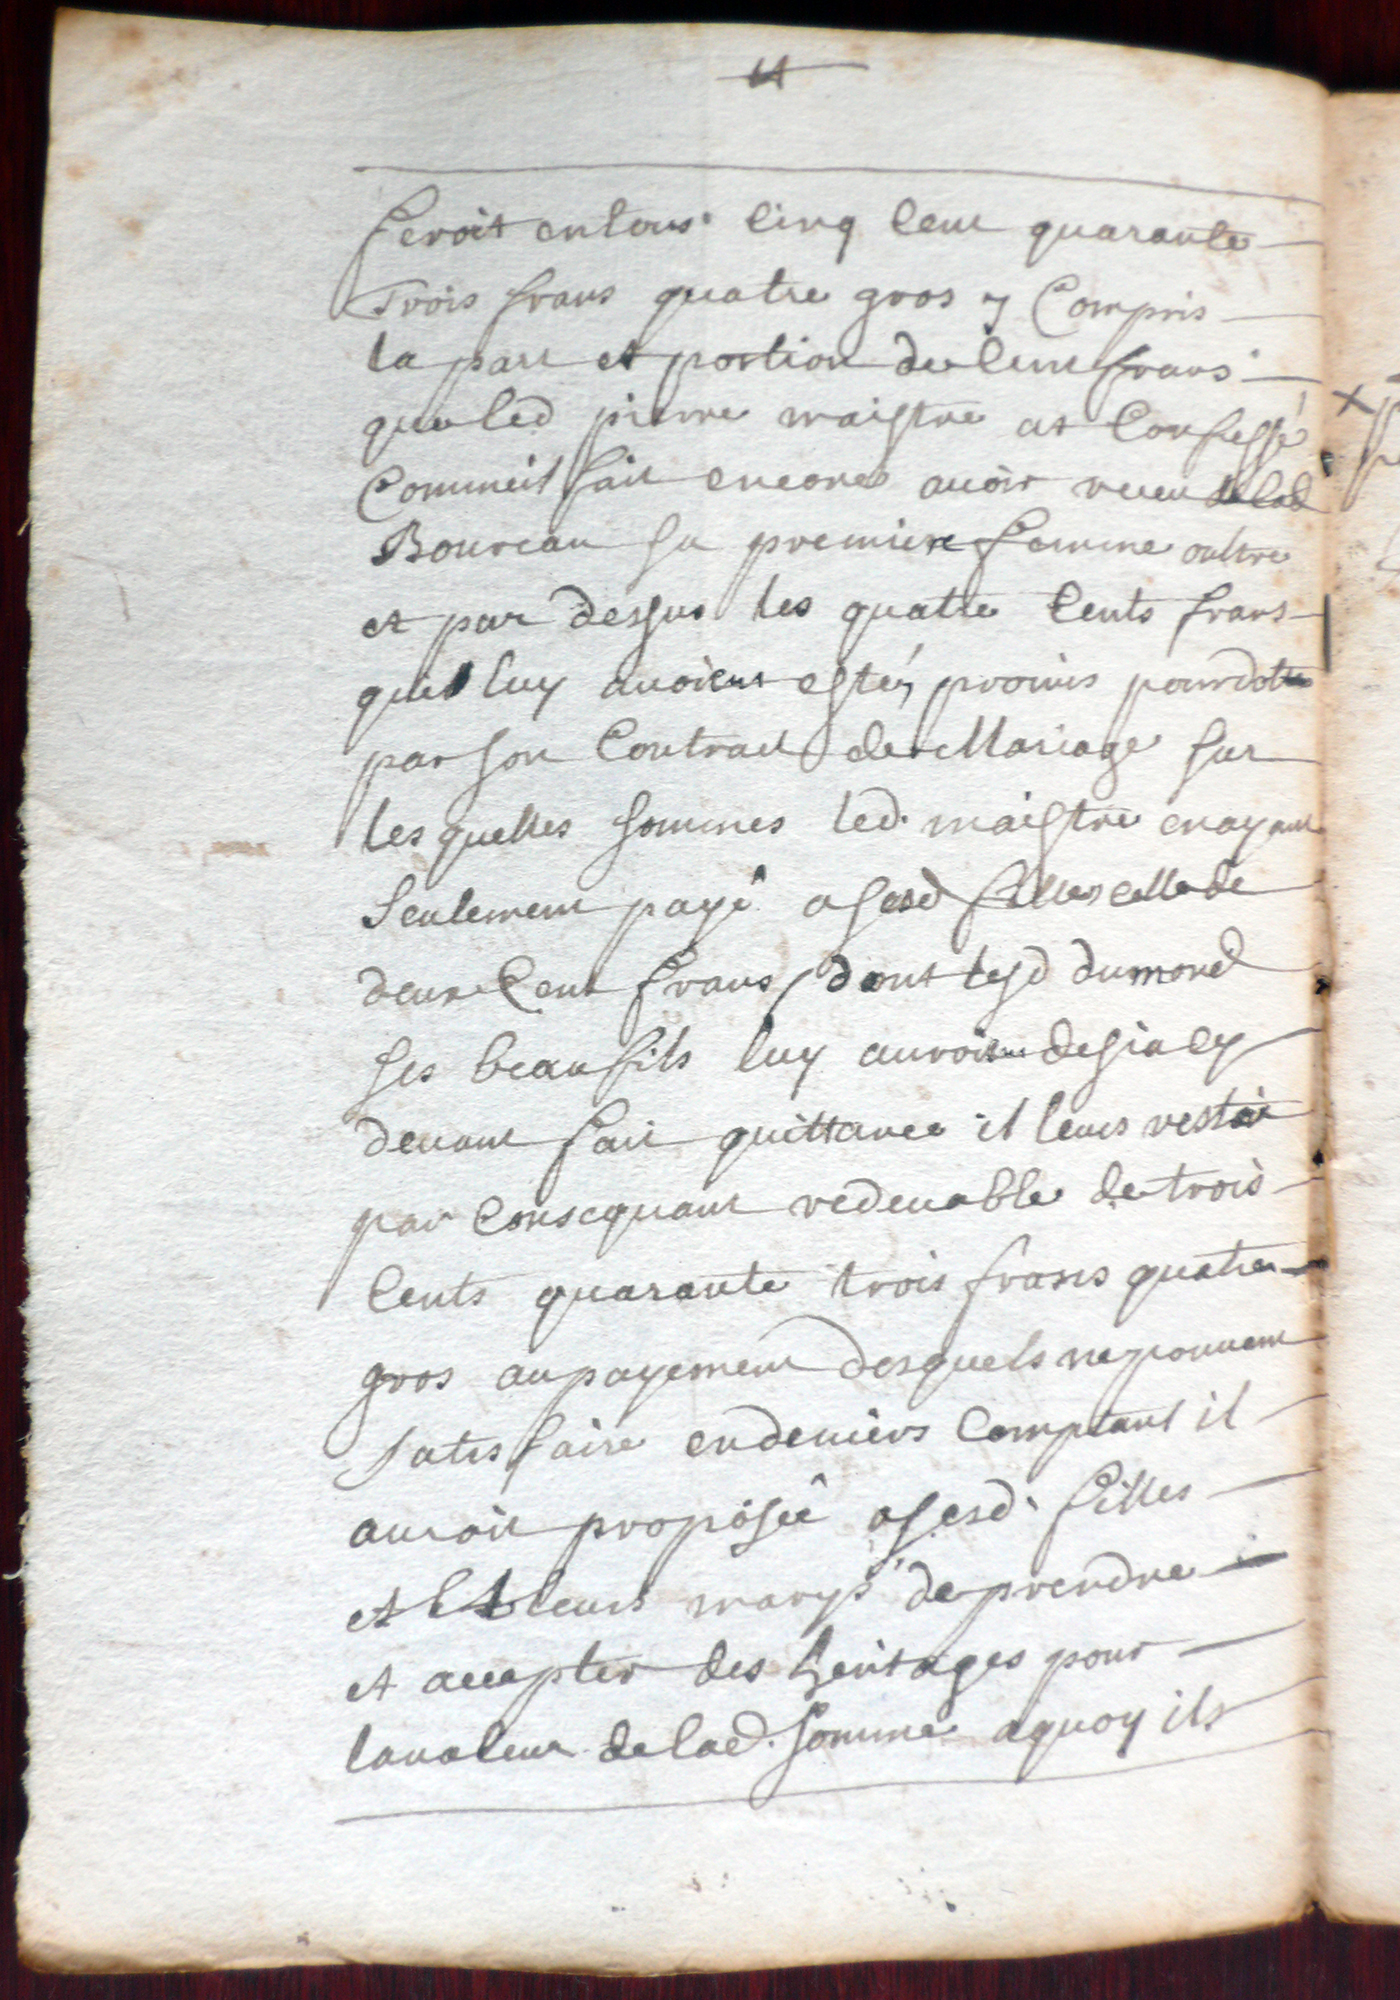 feroit en tous Cinq Cent quarante
Trois frans quatre gros y Compris
la part et portion de Cent frans
que led pierre maistre at Confessé
Comme il fait encores avoir receu de lad
Boureau sa premiere femme oultre
et par dessus les quatre Cents frans
quil luy avoient esté promis pour dotte
par son Contract de Mariage sur
les quelles sommes led. maistre en ayant
Seulement payé a sesd filles celle de
deux Cent frans dont lesd dumond
ses beaufils luy auroient desja cy
devant fait quittance il leurs restoit
par Consequant redevable de trois
Cents quarante trois frans quatre
gros au payement desquels ne pouvant
satisfaire en deniers Comptant il
auroit proposée a sesd. filles
et A leurs marys de prendre
et accepter des heritages pour
la valeur de lad. somme a quoy ils